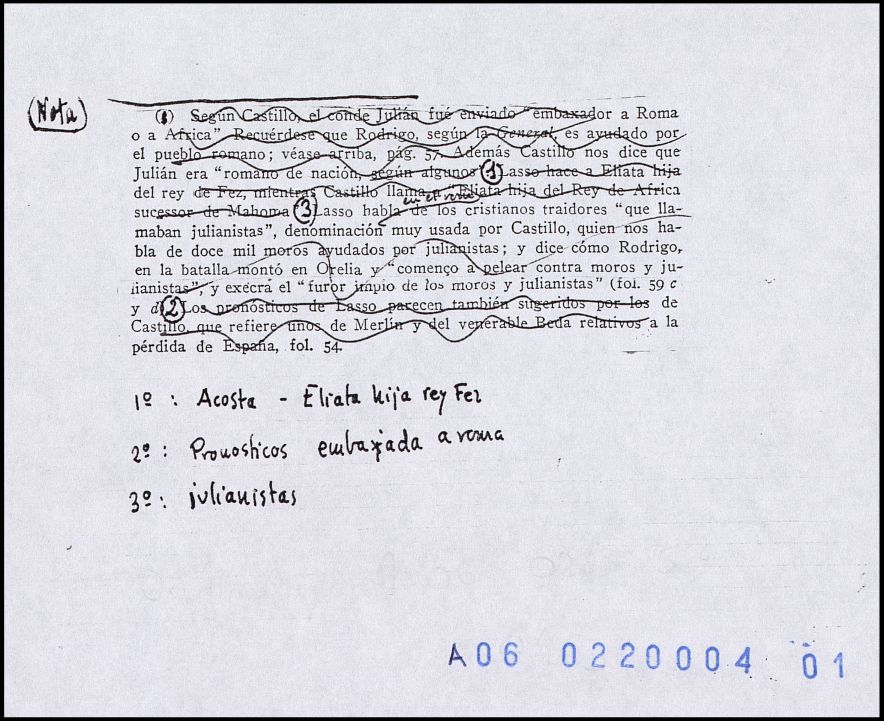 (Nota)
(1) Según Castillo, el conde Julián fué enviado "embaxador a Roma
o a Africa". Recuérdese que Rodrigo, según la General, es ayudado por
el pueblo romano; véase arriba, pág. 57. Además Castillo nos dice que
Julián era "romano de nación, según algunos (1) Lasso hace a Eliata hija
del rey de Fez, mientras Castillo llama a "Eliata hija del Rey de Africa
en el verso
sucessor de Mahoma (3) Lasso habla de los cristianos traidores "que lla-
maban julianistas", denominación muy usada por Castillo, quien nos ha-
bla de doce mil moros ayudados por julianistas; y dice cómo Rodrigo,
en la batalla montó en Orelia y "començo a pelear contra moros y ju-
lianistas", y execra el "furor impio de los moros y julianistas" (fol. 59 c
y d (2) Los pronósticos de Lasso parecen también sugeridos por los de
Castillo, que refiere unos de Merlín y del venerable Beda relativos a la
pérdida de España, fol. 54.
1º : Acosta - Eliata hija rey Fez
2º : Pronosticos embaxada a roma
3º : julianistas
A06 0220004 01